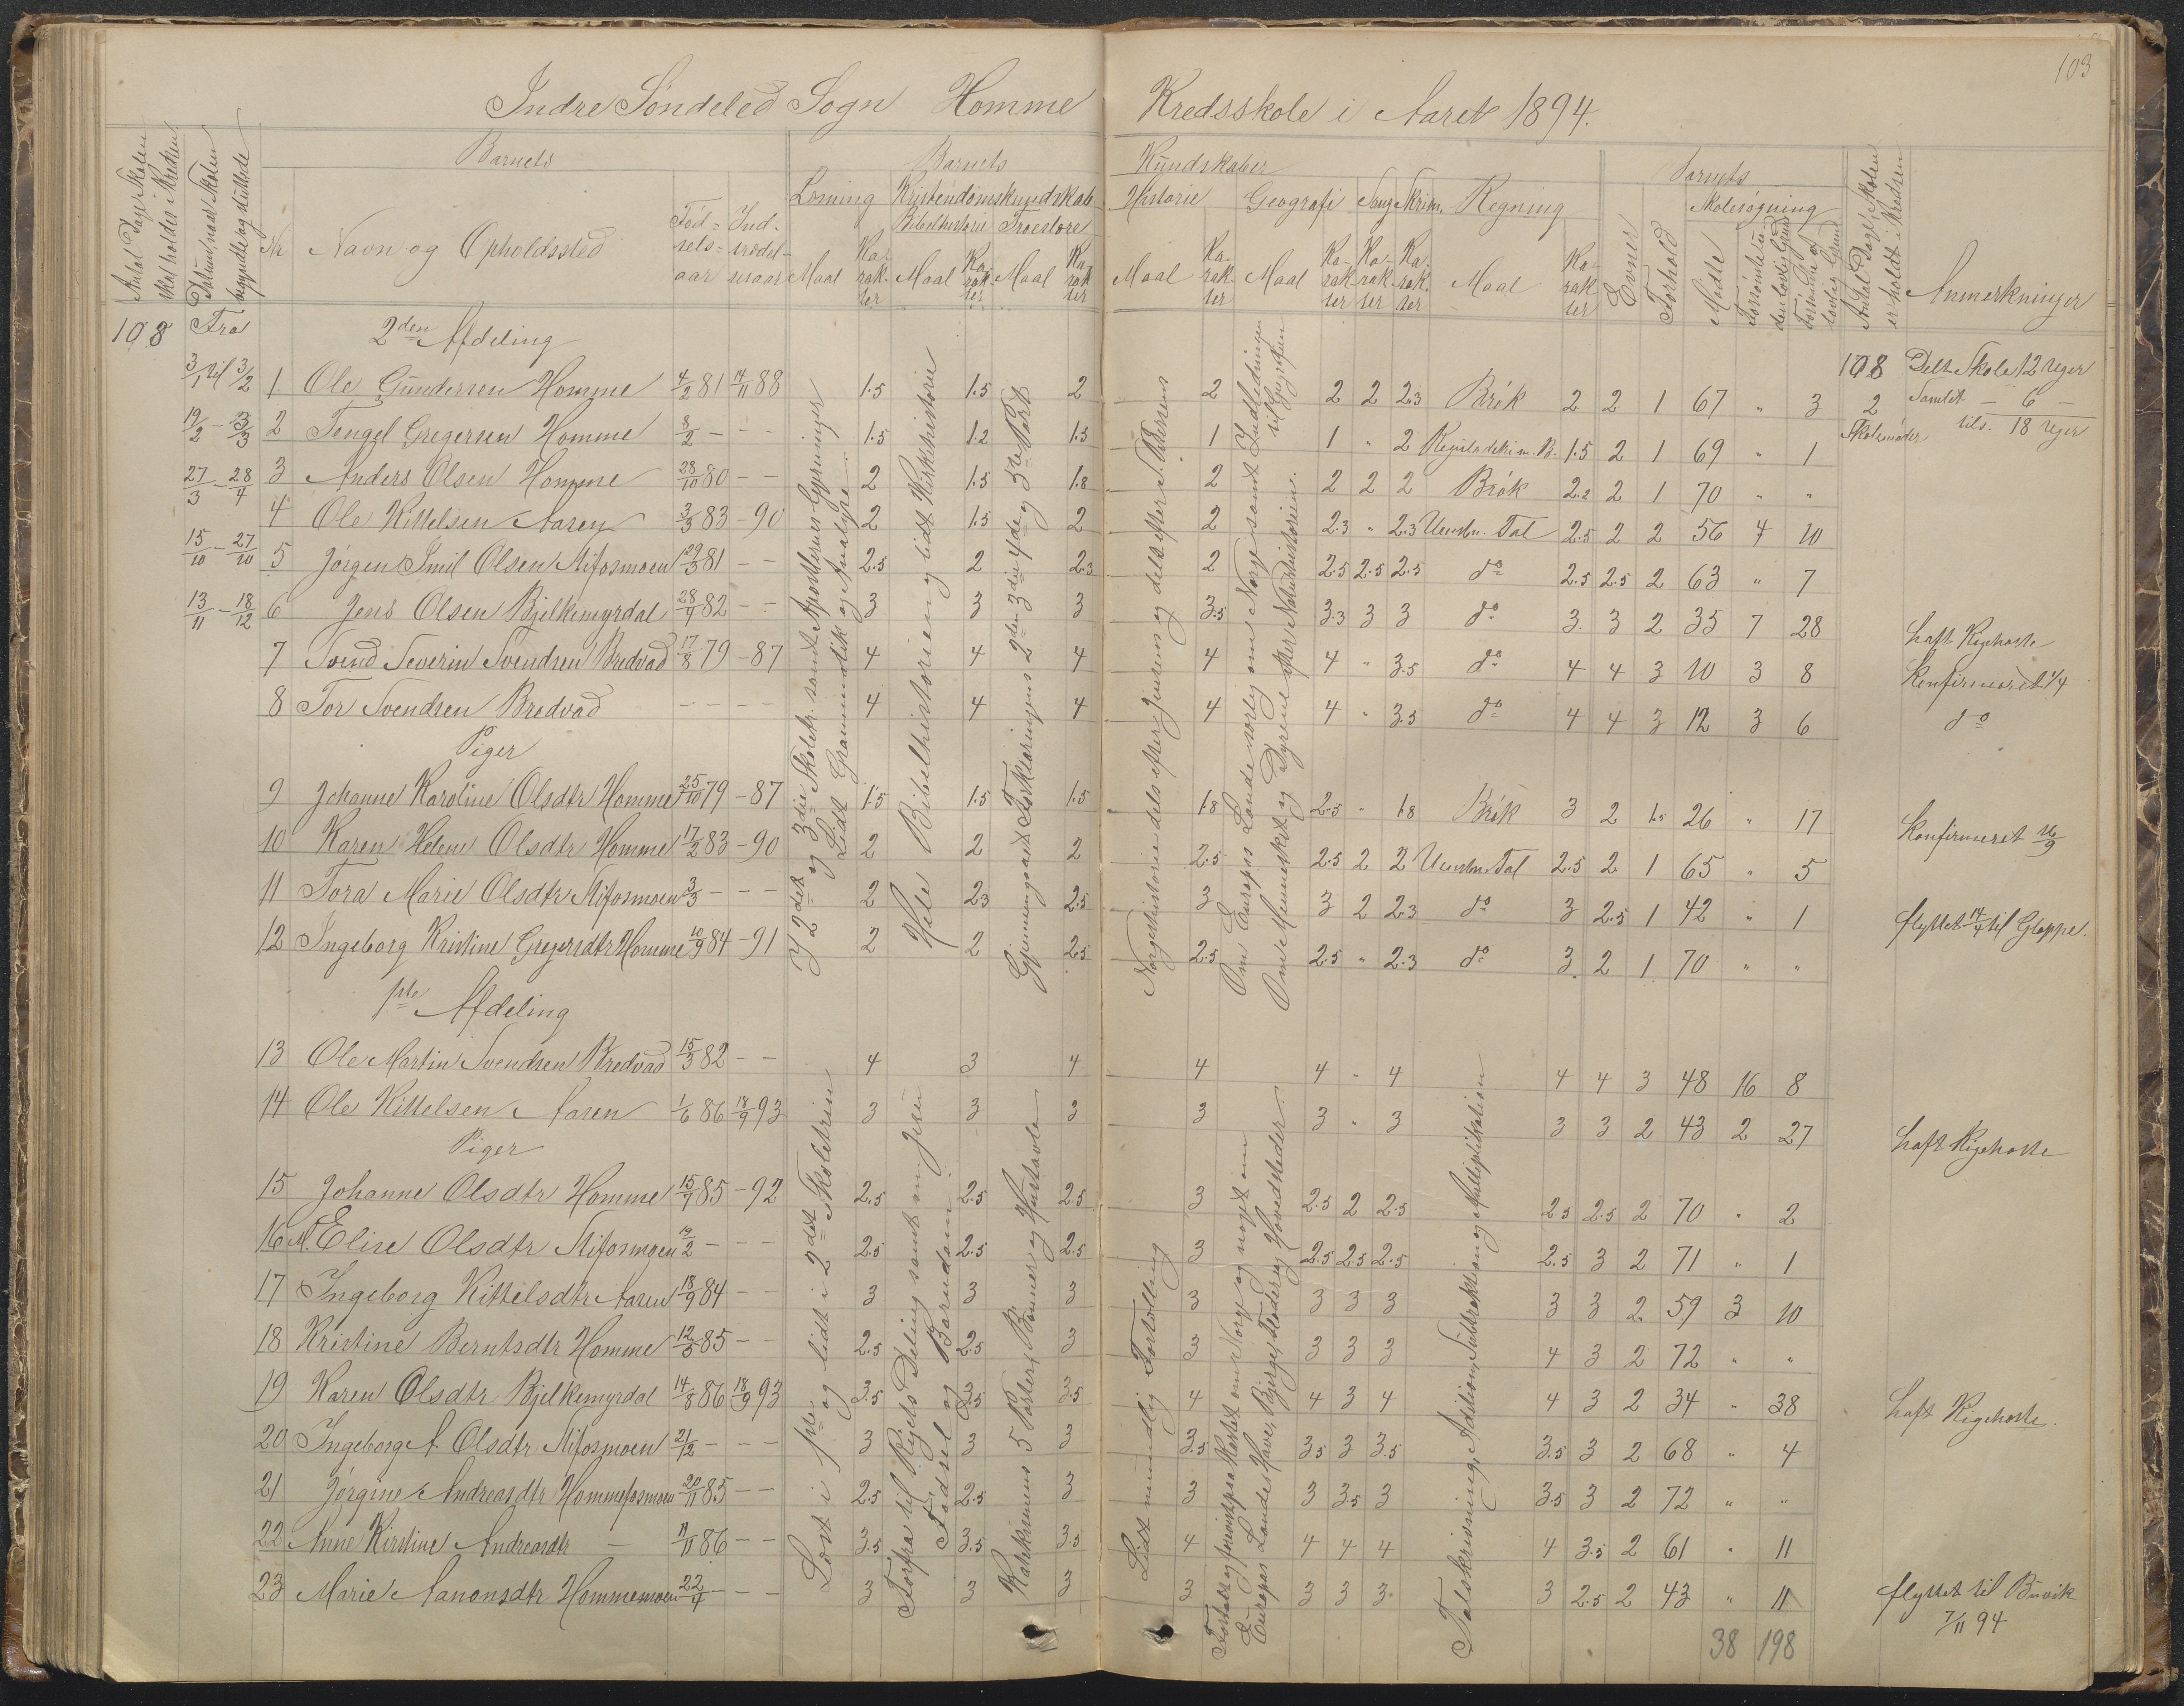 103
Indre Söndeled Sogn Homme Kredsskole i Aaret 1894.
Antal Dage Skolen skal holdes i Kredsen
Datum, naar Skolen begyndte og sluttede
Barnets
Nr Navn og Opholdssted
Föd-sels-aar
Ind-trædel-sesaar
Barnets Kundskaber
Læsning Maal Ka-rak-ter
Kristendomskundskab
Bibelhistorie Maal Ka-rak-ter
Troeslære Maal Ka-rak-ter
Historie Maal Ka-rak-ter
Geografi Maal Ka-rak-ter
Sang Ka-rak-ter
Skrivn. Ka-rak-ter
Regning Maal Ka-rak-ter
Barnets
Evner
Forhold
Skolesøgning
Mødte
Forsømte uden lovlig Grund
Forsømte af lovlig Grund
Antal Dage Skolen er holdt i Kredsen
Anmerkninger
108 Fra 2den Afdeling
3/1 til 3/2 1 Ole Gundersen Homme 4/2 81 14/11 88 1.5 1.5 2 2 2 2 2.3 Brök 2 2 1 67 " 3 108 Delt Skole 12 Uger
19/2 – 13/3 2 Tengel Gregersen Homme 8/2 – – – 1.5 1.2 1.5 1 1 " 2 1.5 2 1 69 " 1 2 Skolemøder Samlet – 6 – tils. 18 Uger
27/3 – 28/4 3 Anders Olsen Homme 28/10 80 – – 2 1.5 1.8 2 2 2 2 Brök 2.2 2 1 70 " "
4 Ole Kittelsen Aaren 3/3 83 – 90 2 1.5 2 2 2.3 " 2.3 Uensbn. Tal 2.5 2 2 56 4 10
15/10 – 27/10 5 Jörgen Emil Olsen Stifosmoen 29/3 81 – – 2.5 2 2.3 2 2.5 2.5 2.5 do 2.5 2.5 2 63 " 7
13/11 – 18/12 6 Jens Olsen Bjelkemyrdal 28/9 82 – – 3 3 3 3.5 3.3 3 3 do 3. 3 2 35 7 28 haft Kighoste
7 Svend Severin Svendsen Bredvad 17/8 79 – 87 4 4 4 4 4 " 3.5 do 4 4 3 10 3 8 Konfirmeret 1/4
8 Tor Svendsen Bredvad – – – – 4 4 4 4 4 " 3.5 do 4 4 3 12 3 6 do
Piger
9 Johanne Karoline Olsdtr Homme 25/10 79 – 87 1.5 1.5 1.5 1.8 2.5 " 1.8 Brök 3 2 1.5 26 " 17 Konfirmeret 16/9
10 Karen Helene Olsdtr Homme 17/2 83 – 90 2 2 2 2.5 2.5 2 2 Uensbn. Tal 2.5 2 1 65 " 5
11 Tora Marie Olsdtr Stifosmoen 3/3 – – – 2 2.3 2.5 3 3 2 2.3 do 3 2.5 1 42 " 1 flyttet 14/4 til Gloppe.
12 Ingeborg Kristine Gregersdtr Homme 10/9 84 – 91 2 2 2.5 2.5 2.5 " 2.3 do 3. 2 1 70 " "
I 2det og 3die Skoletr. samt Apostlernes Gjerninger
Lidt Grammatik og Analyse.
Hele Bibelhistorien og lidt Kirkehistorie
Gjennemgaaet Forklaringens 2den 3die 4de og 5te Part
Norgeshistorie dels efter Jensens og dels efter S. Petersens
Om Europas Lande særlig om Norge samt Indledningen til Geografien
Om Mennesket og Dyrene efter Naturhistorien.
1ste Afdeling
13 Ole Martin Svendsen Bredvad 15/3 82 – – 4 3 4 4 4 " 4 4 4 3 48 16 8
14 Ole Kittelsen Aaren 1/6 86 18/9 93 3 3 3 3 3 " 3 3 3 2 43 2 27 haft Kighoste
Piger
15 Johanne Olsdtr Homme 15/7 85 – 92 2.5 2.5 2.5 3 2.5 2 2.5 2.5 2.5 2 70 " 2
16 M. Elise Olsdtr Stifosmoen 12/2 – – – 2.5 2.5 2.5 3 2.5 2.5 2.5 2.5 3 2 71 " 1
17 Ingeborg Kittelsdtr Aaren 18/9 84 – – 3 3 3 3 3 3 3 3 3 2 59 3 10
18 Kristine Berntsdtr Homme 12/5 85 – – 2.5 2.5 3 3 3 3 3 4 3 2 72 " "
19 Karen Olsdtr Bjelkemyrdal 14/8 86 18/9 93 3.5 3.5 3.5 4 4 3 4 4 3 2 34 " 38 haft Kighoste.
20 Ingeborg A. Olsdtr Stifosmoen 21/12 – – – 3 3 3 3.5 3.5 3 3.5 3.5 3 2 68 " 4
21 Jörgine Andreasdtr Hommefosmoen 20/11 85 – – 2.5 2.5 3 3 3 3.5 3 3.5 3 2 72 " "
22 Anne Kirstine Andreasdtr – 11/11 86 – – 3.5 3.5 3.5 4 4 4 4 4 3.5 2 61 " 11
23 Marie Aanonsdtr Hommemoen 22/4 – – – 3 3 3 3 3 3 3 3 2.5 2 43 " 11 flyttet til Buvik 7/11 94
Læst i 1ste og lidt i 2det Skoletrin
Forfra til Rigets Deling samt om Jesu Födsel og Barndom
Katekismens 5 Parter, Bønner og Hustavle
Lidt mundlig Fortælling
Fortalt og forevist paa Kartet om Norge og noget om
Europas Lande, Have, Bjerge, Floder og Hovedstæder.
Talskrivning, Adition, Subtraktion og Multiplikation
38 198